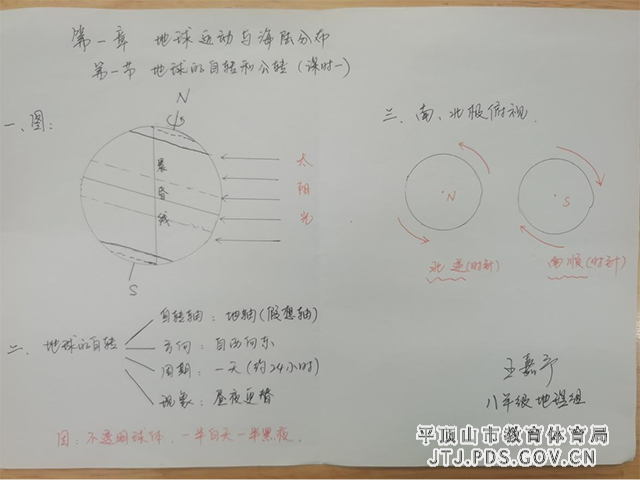 第一章 地球运动与海陆分布
第一节 地球的自转和公转(课时一)
一、图:
N
晨
昏
线
太
阳
光
S
三、南、北极俯视.
N
S
北逆(时针)
南顺(时针)
二、地球的自转
自转轴:地轴(假想轴)
方向:自西向东
周期:一天(约24小时)
现象:昼夜更替
因:不透明球体.一半白天一半黑夜.
王嘉宁
八年级地理组
平顶山市教育体育局
JTJ.PDS.GOV.CN